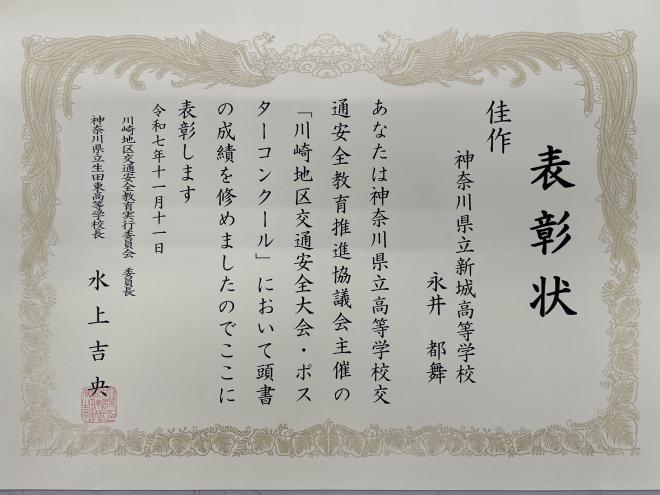 表彰状
佳作
神奈川県立新城高等学校
永井 都舞
あなたは神奈川県立高等学校交
通安全教育推進協議会主催の
「川崎地区交通安全大会・ポス
ターコンクール」において頭書
の成績を修めましたのでここに
表彰します
令和七年十一月十一日
川崎地区交通安全教育実行委員会 委員長
神奈川県立生田東高等学校長
水上吉央